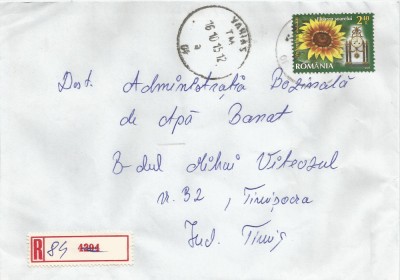 VARIAȘ
TM
16.10.15-12
a
2.40
ROMÂNIA
Dest. Administrația Bazinală
de Apă Banat
B-dul Mihai Viteazul
nr. 32, Timișoara
Jud. Timiș
R 84 4204